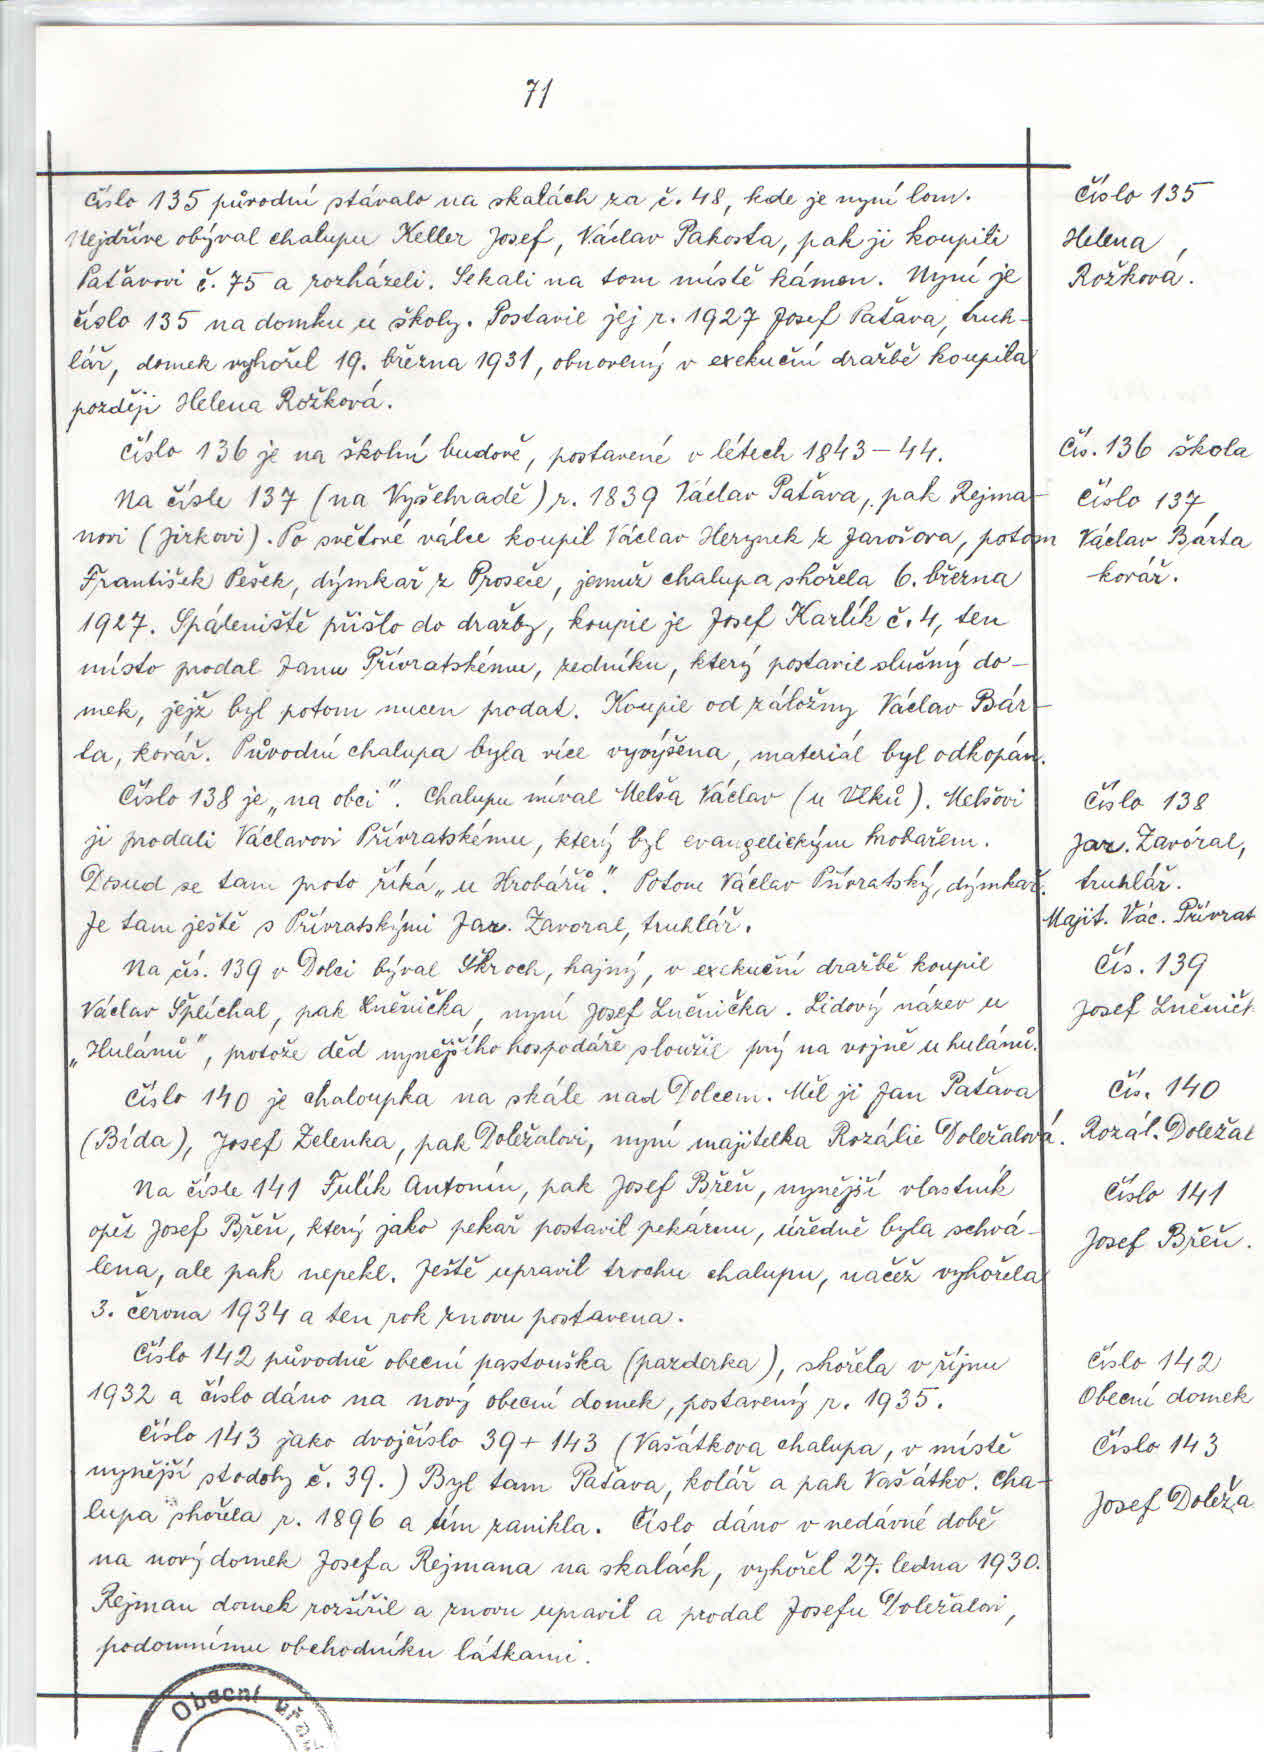 71
Číslo 135 původní stávalo na skalách za č. 48, kde je nyní lom.
Nejdříve obýval chalupu Keller Josef, Václav Pakosta, pak ji koupili
Paťavovi č. 75 a rozházeli. Sekali na tom místě kámen. Nyní je
číslo 135 na domku u školy. Postavil jej r. 1927 Josef Paťava, truh-
lář, domek vyhořel 19. března 1931, obnovený v exekuční dražbě koupila
později Helena Rožková.
Číslo 136 je na školní budově, postavené v létech 1843-44.
Na čísle 137 (na Vyšehradě) r. 1839 Václav Paťava, pak Rejma-
novi (Jirkovi). Po světové válce koupil Václav Herynek z Jarošova, potom
František Pešek, dýmkař z Proseče, jemuž chalupa shořela 6. března
1927. Spáleniště přišlo do dražby, koupil je Josef Karlík č. 4, ten
místo prodal Janu Přívratskému, zedníku, který postavil slušný do-
mek, jejž byl potom nucen prodat. Koupil od záložny Václav Bár-
ta, kovář. Původní chalupa byla více vyvýšena, materiál byl odkopán.
Číslo 138 je „na obci". Chalupu míval Melša Václav (u Vlků). Melšovi
ji prodali Václavovi Přívratskému, který byl evangelickým hrobařem.
Dosud se tam proto říká „u Hrobařů". Potom Václav Přívratský, dýmkař.
Je tam ještě s Přívratskými Jar. Zavoral, truhlář.
Na čís. 139 v Dolci býval Škroch, hajný, v exekuční dražbě koupil
Václav Šplíchal, pak Lněnička, nyní Josef Lněnička. Lidový název u
„Hulánů", protože děd nynějšího hospodáře sloužil prý na vojně u hulánů.
Číslo 140 je chaloupka na skále nad Dolcem. Měl ji Jan Paťava
(Bída), Josef Zelenka, pak Doležalovi, nyní majitelka Rozálie Doležalová.
Na čísle 141 Fulík Antonín, pak Josef Břeň, nynější vlastník
opět Josef Břeň, který jako pekař postavil pekárnu, úředně byla schvá-
lena, ale pak nepekl. Ještě upravil trochu chalupu, načež vyhořela
3. června 1934 a ten rok znovu postavena.
Číslo 142 původně obecní pastouška (pazderka), shořela v říjnu
1932 a číslo dáno na nový obecní domek, postavený r. 1935.
Číslo 143 jako dvojčíslo 39+143 (Vašátkova chalupa, v místě
nynější stodoly č. 39.) Byl tam Paťava, kolář a pak Vašátko. Cha-
lupa shořela r. 1896 a tím zanikla. Číslo dáno v nedávné době
na nový domek Josefa Rejmana na skalách, vyhořel 27. ledna 1930.
Rejman domek rozšířil a znovu upravil a prodal Josefu Doležalovi,
podomnímu obchodníku látkami.
Číslo 135
Helena
Rožková.
Čís. 136 škola
Číslo 137
Václav Bárta
kovář.
Číslo 138
Jar. Zavóral,
truhlář.
Majit. Vác. Přívrat
Čís. 139
Josef Lněničk
Čís. 140
Rozál. Doležal
Číslo 141
Josef Břeň.
Číslo 142
Obecní domek
Číslo 143
Josef Doleža
Obecní úřad